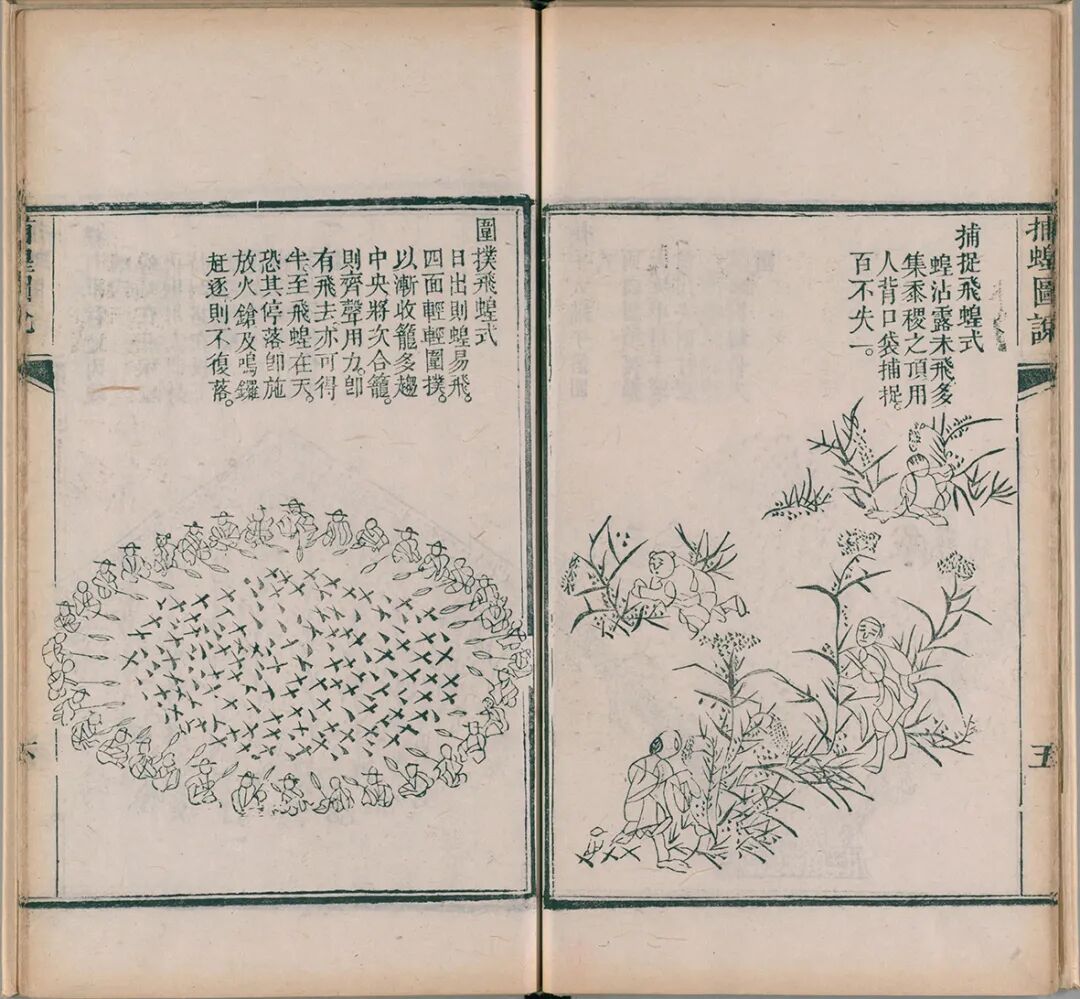 捕蝗圖說
五
捕捉飛蝗式
蝗沾露未飛多
集黍稷之頂用
人背口袋捕捉。
百不失一。
圍撲飛蝗式
日出則蝗易飛。
四面輕輕圍撲。
以漸收籠多趨
中央將次合籠。
則齊聲用力。卽
有飛去亦可得
半至飛蝗在天。
恐其停落卽施
放火鎗及鳴鑼
赶逐則不復落。